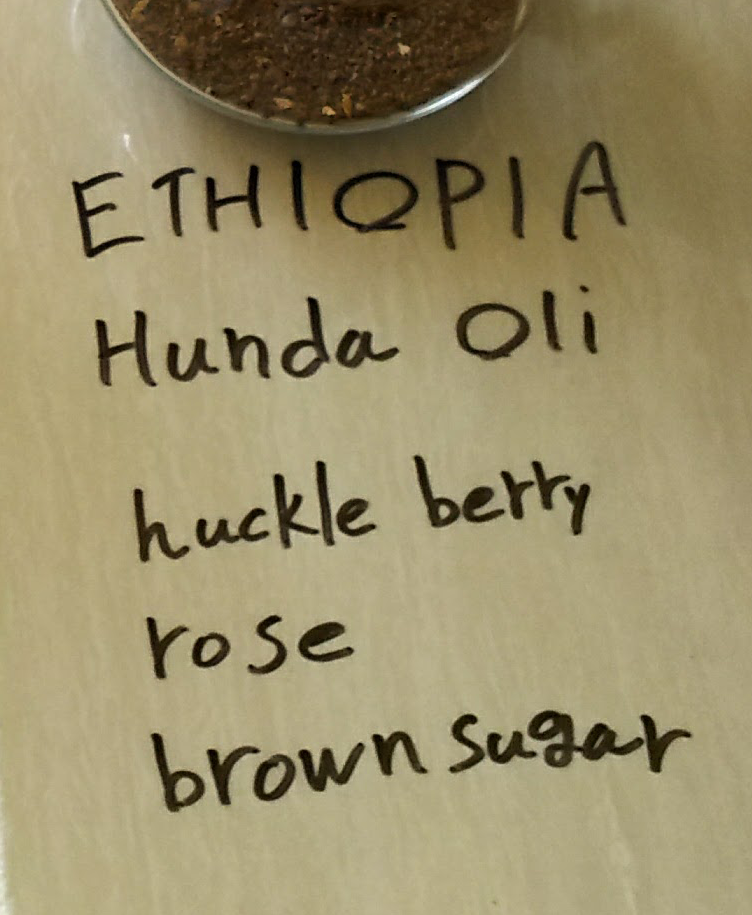 ETHIOPIA
Hunda Oli
huckle berry
rose
brown sugar